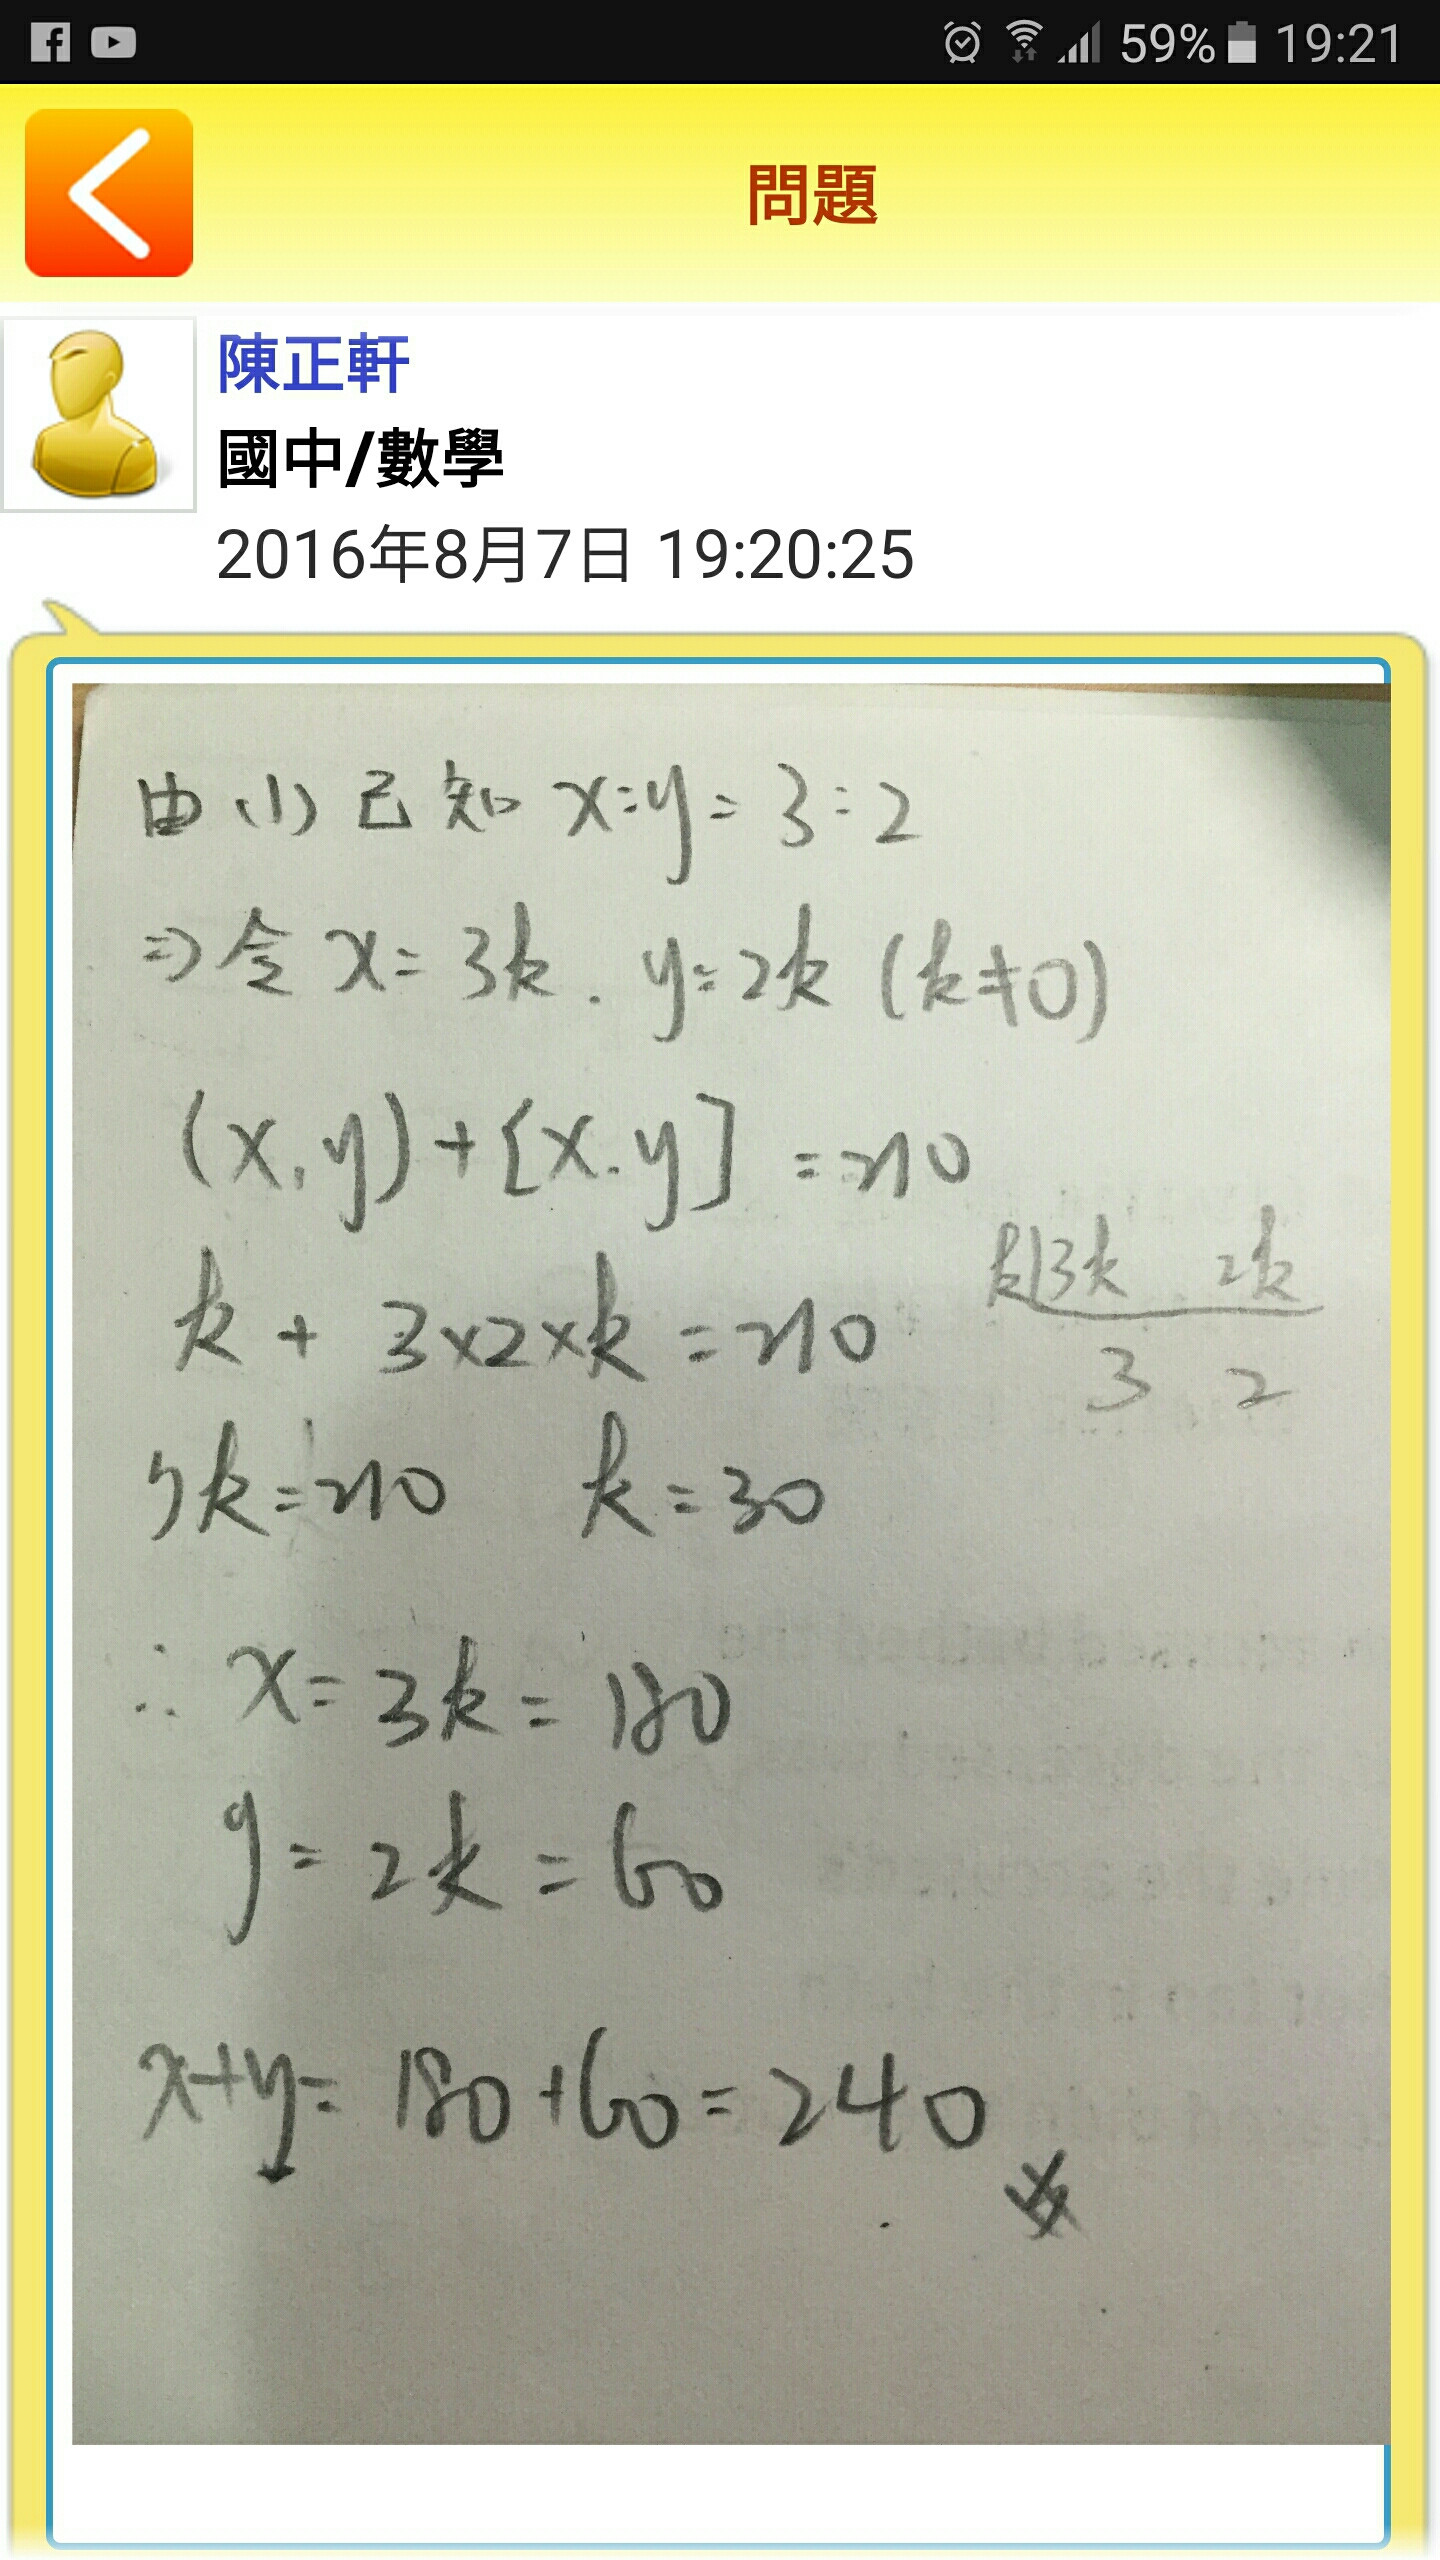 59% 19:21
問題
陳正軒
國中/數學
2016年8月7日 19:20:25
由(1)已知 x:y=3:2
⇒令 x=3k. y=2k (k≠0)
(x,y)+[x.y] =210
k + 3×2×k =210
k|3k 2k
3 2
7k=210 k=30
∴ x=3k=180
y=2k=60
x+y=180+60=240